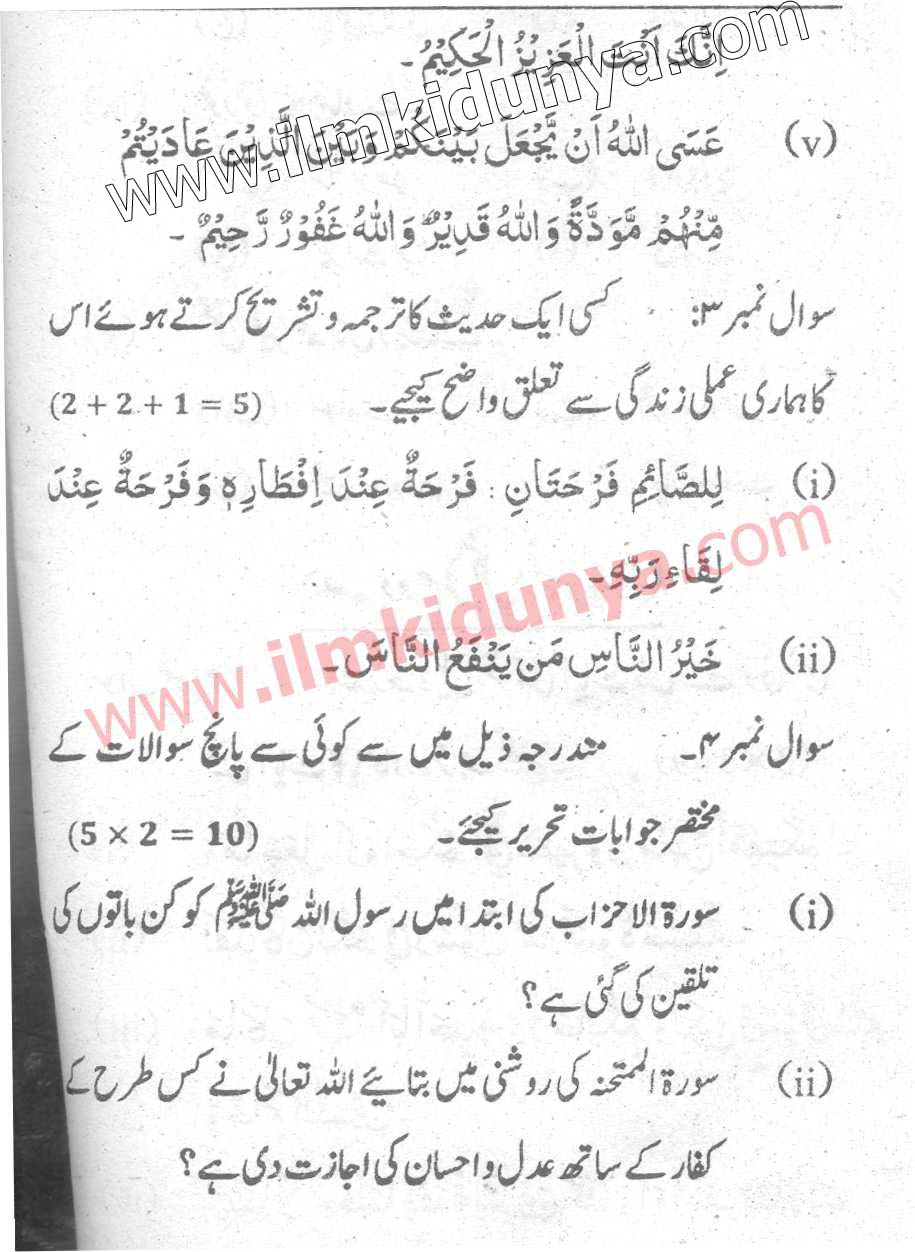 اِنَّكَ اَنْتَ الْعَزِيْزُ الْحَكِيْمُ۔
www.ilmkidunya.com
(v) عَسَى اللهُ اَنْ يَّجْعَلَ بَيْنَكُمْ وَبَيْنَ الَّذِيْنَ عَادَيْتُمْ
مِّنْهُمْ مَّوَدَّةً وَاللهُ قَدِيْرٌ وَاللهُ غَفُوْرٌ رَّحِيْمٌ ۔
سوال نمبر ۳: کسی ایک حدیث کا ترجمہ و تشریح کرتے ہوئے اس
کا ہماری عملی زندگی سے تعلق واضح کیجیے۔ (2 + 2 + 1 = 5)
(i) لِلصَّائِمِ فَرْحَتَانِ : فَرْحَةٌ عِنْدَ اِفْطَارِهٖ وَفَرْحَةٌ عِنْدَ
لِقَاءِ رَبِّهٖ۔
www.ilmkidunya.com
(ii) خَيْرُ النَّاسِ مَن يَنْفَعُ النَّاسَ۔
سوال نمبر ۴۔ مندرجہ ذیل میں سے کوئی سے پانچ سوالات کے
مختصر جوابات تحریر کیجئے۔ (5 × 2 = 10)
(i) سورۃ الاحزاب کی ابتدا میں رسول اللہ ﷺ کو کن باتوں کی
تلقین کی گئی ہے؟
(ii) سورۃ الممتحنہ کی روشنی میں بتایئے اللہ تعالیٰ نے کس طرح کے
کفار کے ساتھ عدل و احسان کی اجازت دی ہے؟